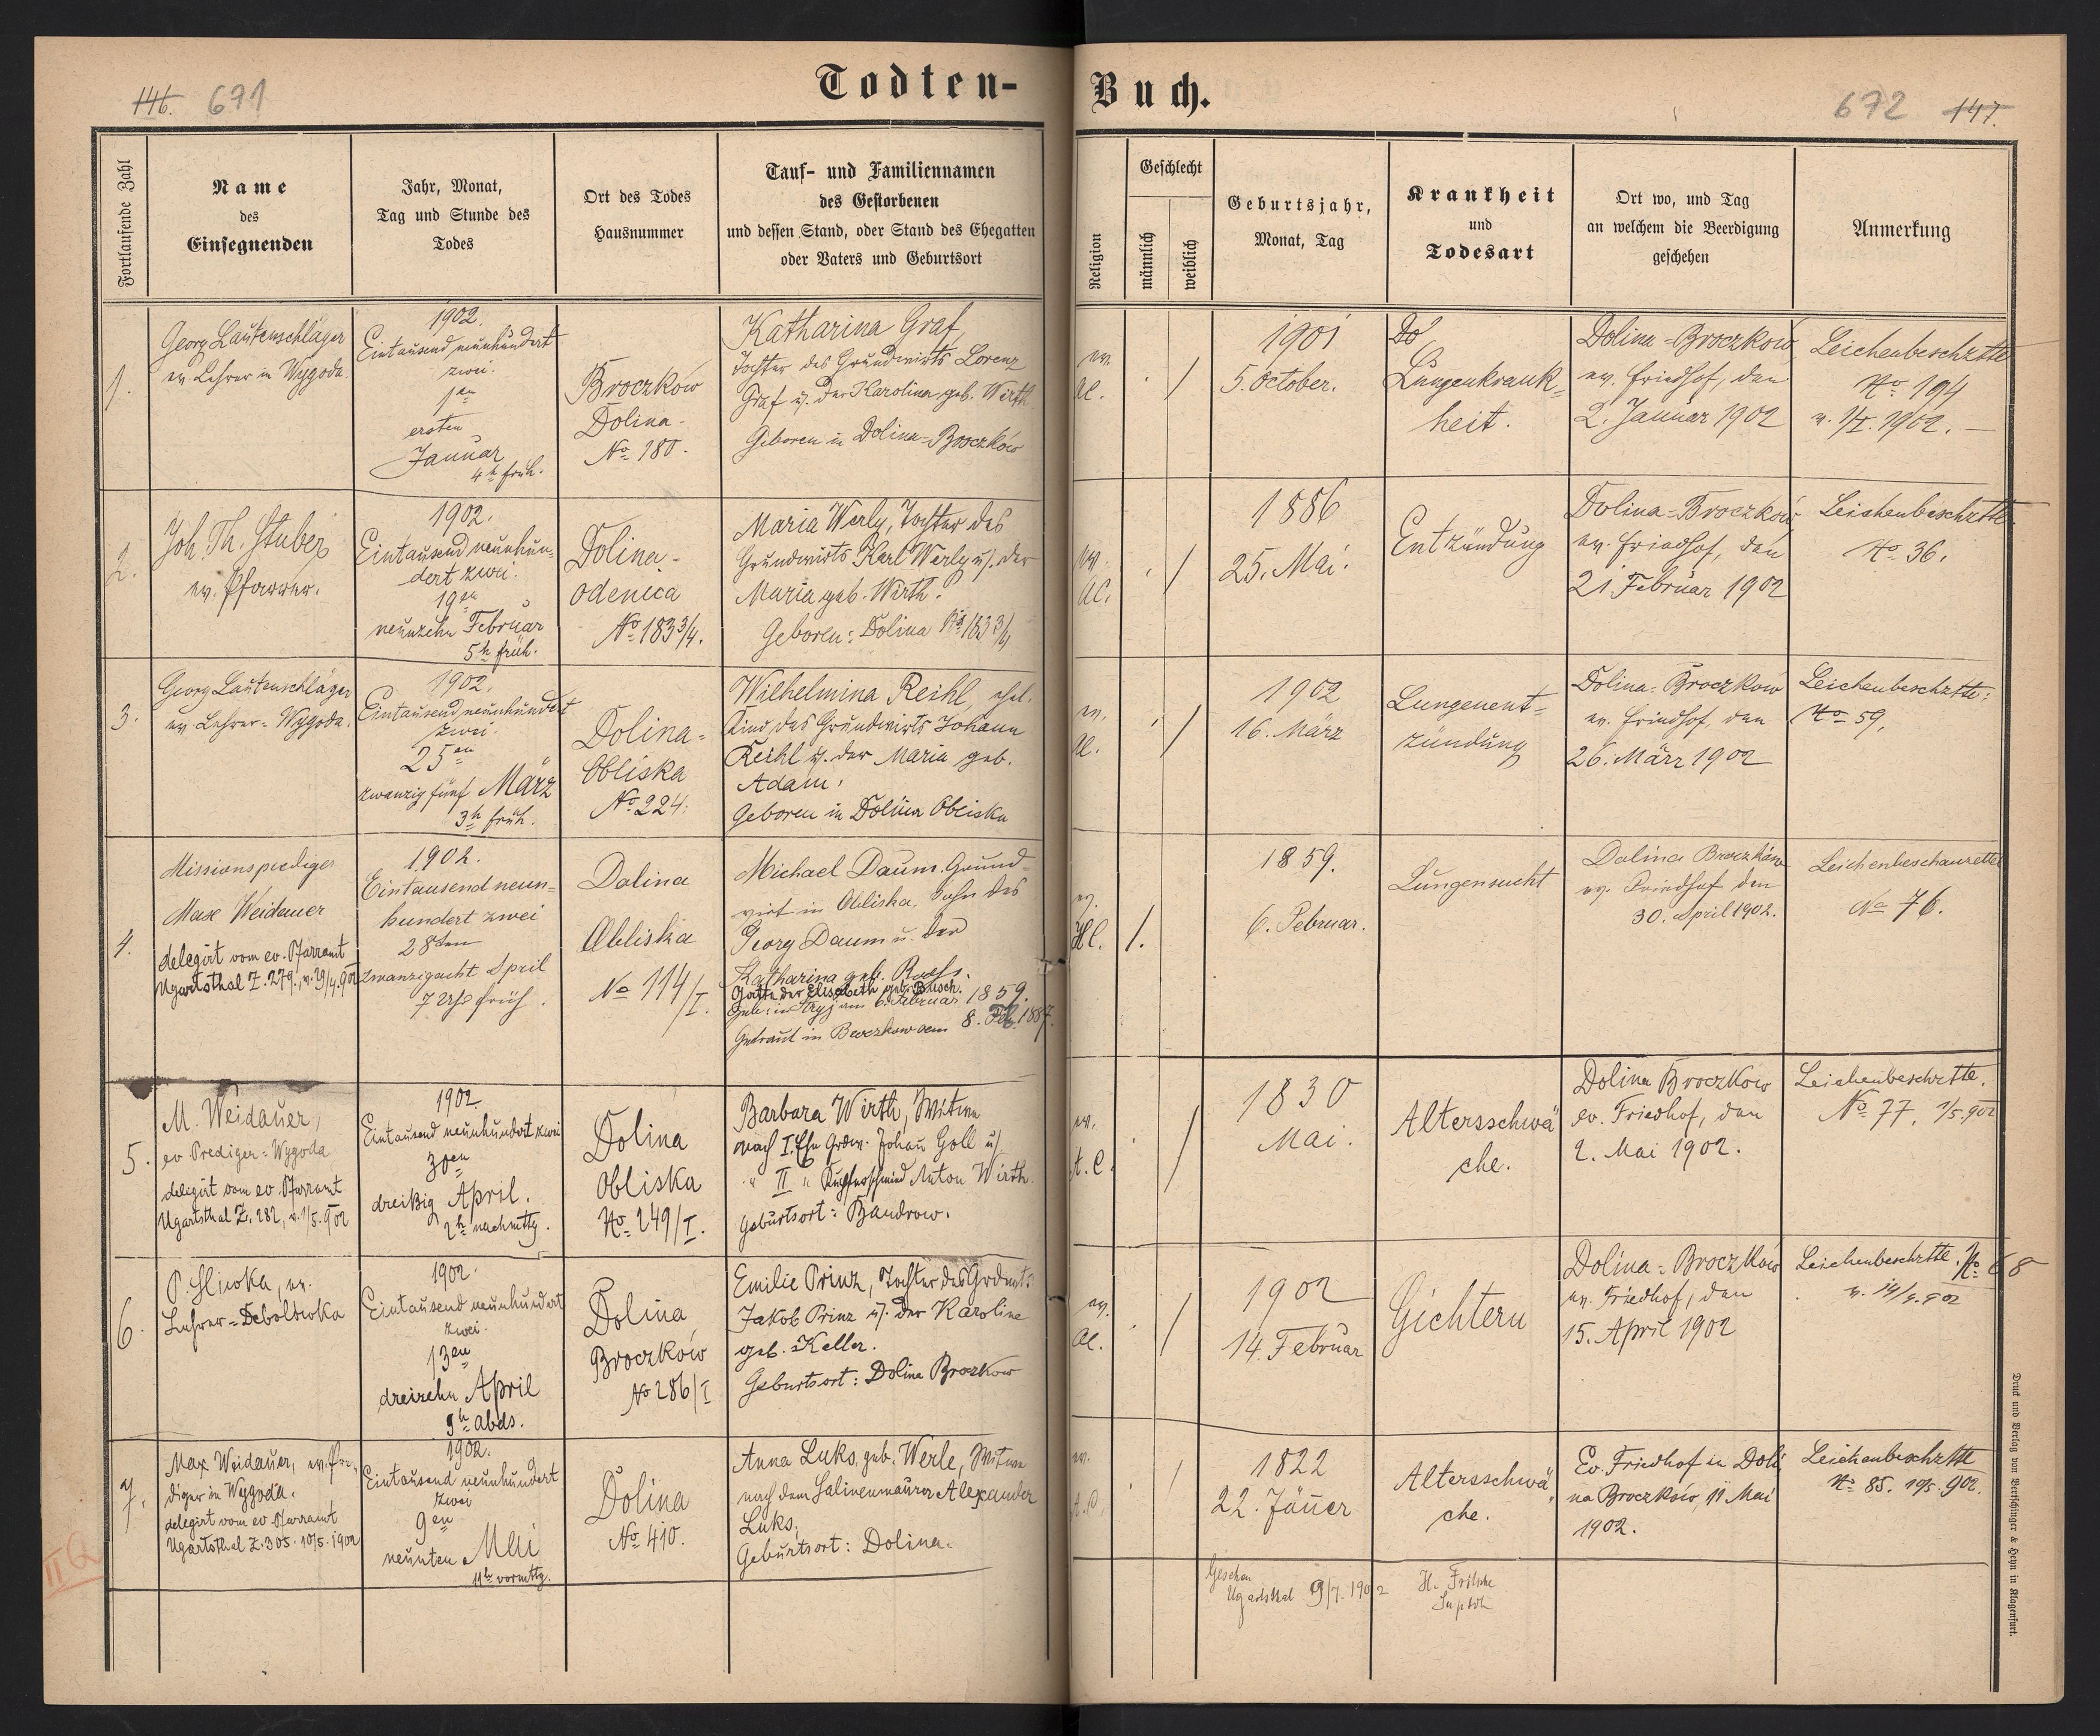 146. 671
Todten-
Buch.
672 147.
Fortlaufende Zahl
Name
des
Einsegnenden
Jahr, Monat,
Tag und Stunde des
Todes
Ort des Todes
Hausnummer
Tauf- und Familiennamen
des Gestorbenen
und dessen Stand, oder Stand des Ehegatten
oder Vaters und Geburtsort
Religion
Geschlecht
männlich
weiblich
Geburtsjahr,
Monat, Tag
Krankheit
und
Todesart
Ort wo, und Tag
an welchem die Beerdigung
geschehen
Anmerkung
1.
Georg Lautenschläger
ev. Lehrer in Wygoda.
1902.
Eintausend neunhundert
zwei.
1en
ersten
Januar
4h früh.
Broczków
Dolina-
No 180.
Katharina Graf,
Tochter des Grundwirts Lorenz
Graf u. der Karolina geb. Wirth
Geboren in Dolina-Broczków
ev.
AC.
/
1901
5. October.
Do
Lungenkrank-
heit.
Dolina-Broczków
ev. Friedhof, den
2. Januar 1902
Leichenbeschztte
No 194
v. 1/I. 1902.
2.
Joh. Th. Stuber
ev. Pfarrer.
1902.
Eintausend neunhun-
dert zwei.
19en
neunzehn Februar
5h früh.
Dolina-
Odenica
No 183 3/4.
Maria Werly, Tochter des
Grundwirts Karl Werly u. der
Maria geb. Wirth.
Geboren: Dolina No 183 3/4
ev.
AC.
/
1886
25. Mai.
Entzündung
Dolina-Broczków
ev. Friedhof, den
21. Februar 1902
Leichenbeschztte
No 36.
3.
Georg Lautenschläger
ev. Lehrer-Wygoda.
1902.
Eintausend neunhundert
zwei.
25en
zwanzig fünf März
3h früh.
Dolina-
Obliska
No 224.
Wilhelmina Reihl, ehel.
Kind des Grundwirts Johann
Reihl u. der Maria geb.
Adam.
Geboren in Dolina Obliska
ev.
AC.
/
1902
16. März
Lungenent-
zündung
Dolina-Broczkow
ev. Friedhof, den
26. März 1902
Leichenbeschztte:
No 59,
4.
Missionsprediger
Max Weidauer
delegirt vom ev. Pfarramt
Ugartsthal Z. 279., v. 29/4. 902
1902.
Eintausend neun-
hundert zwei
28ten
zwanzigacht April
7 Uhr früh.
Dolina
Obliska
No 114/I.
Michael Daum. Grund-
wirt in Obliska. Sohn des
Georg Daum u. der
Katharina geb.
Gatte der Elisabeth geb. Busch.
Geb: in Stryj am 6. Februar 1859.
Getraut in Broczkow am 8. Feb. 1887.
ev.
HC.
/.
1859.
6. Februar.
Lungensucht
Dolina Broczków
ev. Friedhof den
30. April 1902.
Leichenbeschaurette
No 76.
5.
M. Weidauer,
ev Prediger-Wygoda
delegirt vom ev. Pfarramt
Ugartsthal Z. 282, v. 1/5. 902
1902
Eintausend neunhundert zwei
30en
dreißig April.
2h nachmttg.
Dolina
Obliska
No 249/I.
Barbara Wirth, Witwe
nach I. Ehe Grdw. Johann Goll u/
" II " Kupferschmied Anton Wirth.
Geburtsort: Bandrow.
ev.
A.C.
/
1830
Mai.
Altersschwä
che.
Dolina Broczkow
ev. Friedhof, den
2. Mai 1902.
Leichenbeschztte.
No 77. 1/5. 902
6.
P. Hlivka, ev.
Lehrer-Debolówka
1902.
Eintausend neunhundert
zwei.
13en
dreizehn April
9h abds.
Dolina
Broczków
No 286/I
Emilie Prinz, Tochter des Grdwts.
Jakob Prinz u. der Karoline
geb. Keller.
Geburtsort: Dolina Broczkow
ev.
AC.
/
1902
14. Februar
Gichtern
Dolina-Broczków
ev. Friedhof, den
15. April 1902
Leichenbeschztte. No 68
v. 14/4. 902
7.
Max Weidauer, ev. Pre-
diger in Wygoda.
delegirt vom ev Pfarramt
Ugartsthal Z. 305. 10/5. 1902
1902.
Eintausend neunhundert
zwei
9en
neunten Mai
11h vormttg.
Dolina
No 410.
Anna Luks, geb. Werle, Witwe
nach dem Salinenmaurer Alexander
Luks.
Geburtsort: Dolina.
ev.
A.C.
/
1822
22. Jänner
Altersschwä
che.
Ev. Friedhof in Doli
na Broczków 11 Mai
1902.
Leichenbeschztte
No 85. 10/5. 902.
Gesehen
Ugartsthal 9/7. 1902
H. Fritsche
Suptdt
Druck und Verlag von Bertschinger & Heyn in Klagenfurt.